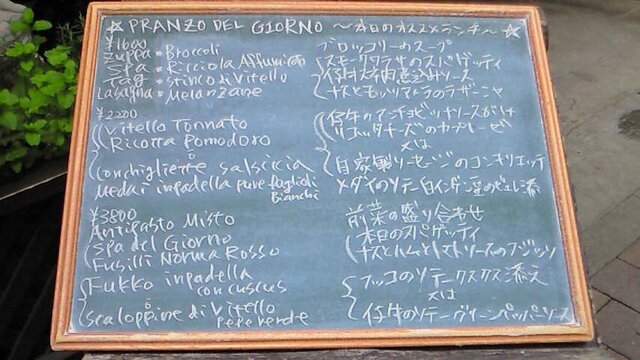 ☆ PRANZO DEL GIORNO 〜本日のオススメランチ〜☆
¥1600
Zuppa・Broccoli ブロッコリーのスープ
Spa・Ricciola Affumicata スモークワラサのスパゲッティ
Tag・Stinco di Vitello 仔牛スネ肉煮込みソース
Lasagna・Melanzane ナスとモッツアレラのラザーニャ
¥2200
Vitello Tonnato 仔牛のアンチョビツナソースがけ
Ricotta Pomodoro リコッタチーズのカプレーゼ
o 又は
Conchigliette salsiccia 自家製ソーセージのコンキリエッテ
Medai inpadella pure fagioli Bianchi メダイのソテー白インゲン豆のピュレ添
¥3800
Antipasto Misto 前菜の盛り合わせ
Spa del Giorno 本日のスパゲッティ
Fusilli Norma Rosso ナスとハムとトマトソースのフジッリ
Fukko inpadella con cuscus フッコのソテークスクス添え
o 又は
Scaloppine di Vitello pepe verde 仔牛のソテーグリーンペッパーソース